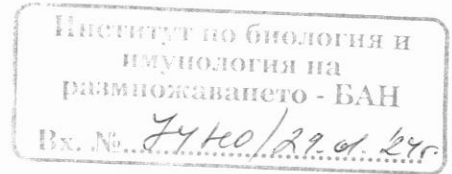 Институт по биология и
имунология на
размножаването - БАН
Вх. №